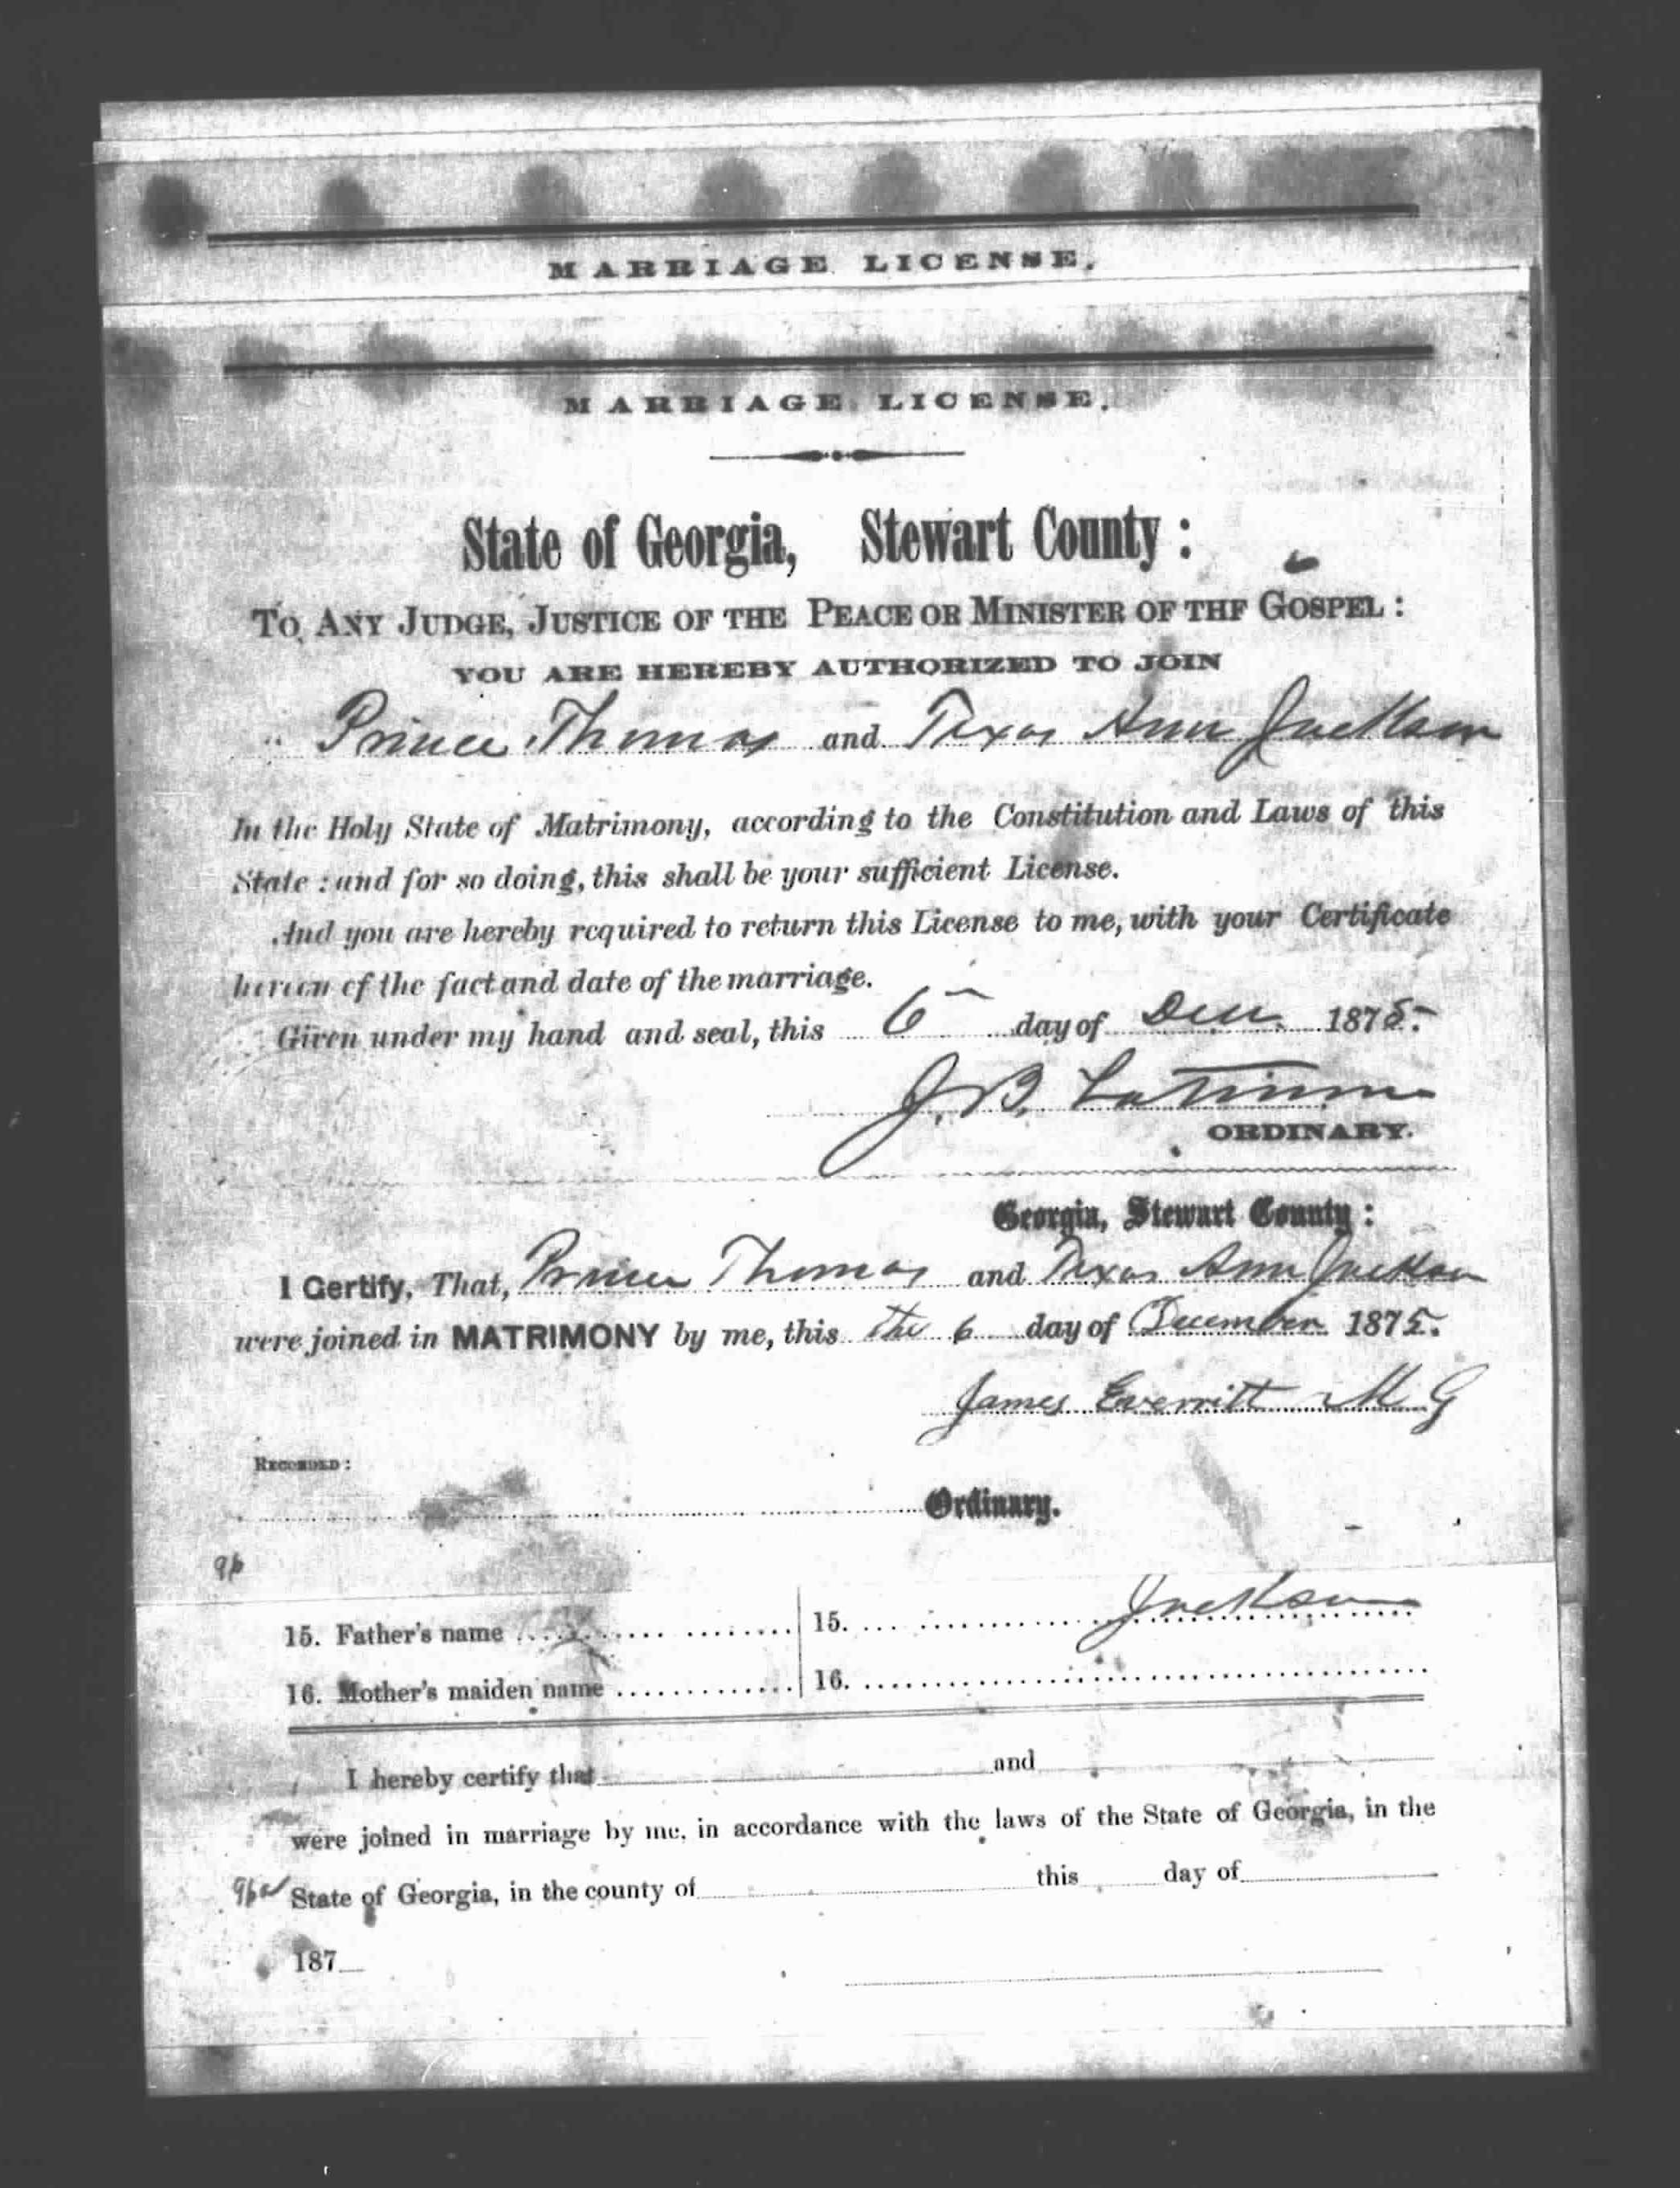 MARRIAGE LICENSE.
MARRIAGE LICENSE.
State of Georgia, Stewart County :
TO ANY JUDGE, JUSTICE OF THE PEACE OR MINISTER OF THF GOSPEL :
YOU ARE HEREBY AUTHORIZED TO JOIN
Prince Thomas and Texas Ann Jackson
In the Holy State of Matrimony, according to the Constitution and Laws of this
State : and for so doing, this shall be your sufficient License.
And you are hereby required to return this License to me, with your Certificate
hereon of the fact and date of the marriage.
Given under my hand and seal, this 6 day of Decr. 1875.
J. B. Latimer
ORDINARY.
Georgia, Stewart County :
I Certify, That, Prince Thomas and Texas Ann Jackson
were joined in MATRIMONY by me, this the 6 day of December 1875.
James Everritt M G
RECORDED :
Ordinary.
96
15. Father's name 15. Jackson
16. Mother's maiden name 16.
I hereby certify that and
were joined in marriage by me, in accordance with the laws of the State of Georgia, in the
96a State of Georgia, in the county of this day of
187